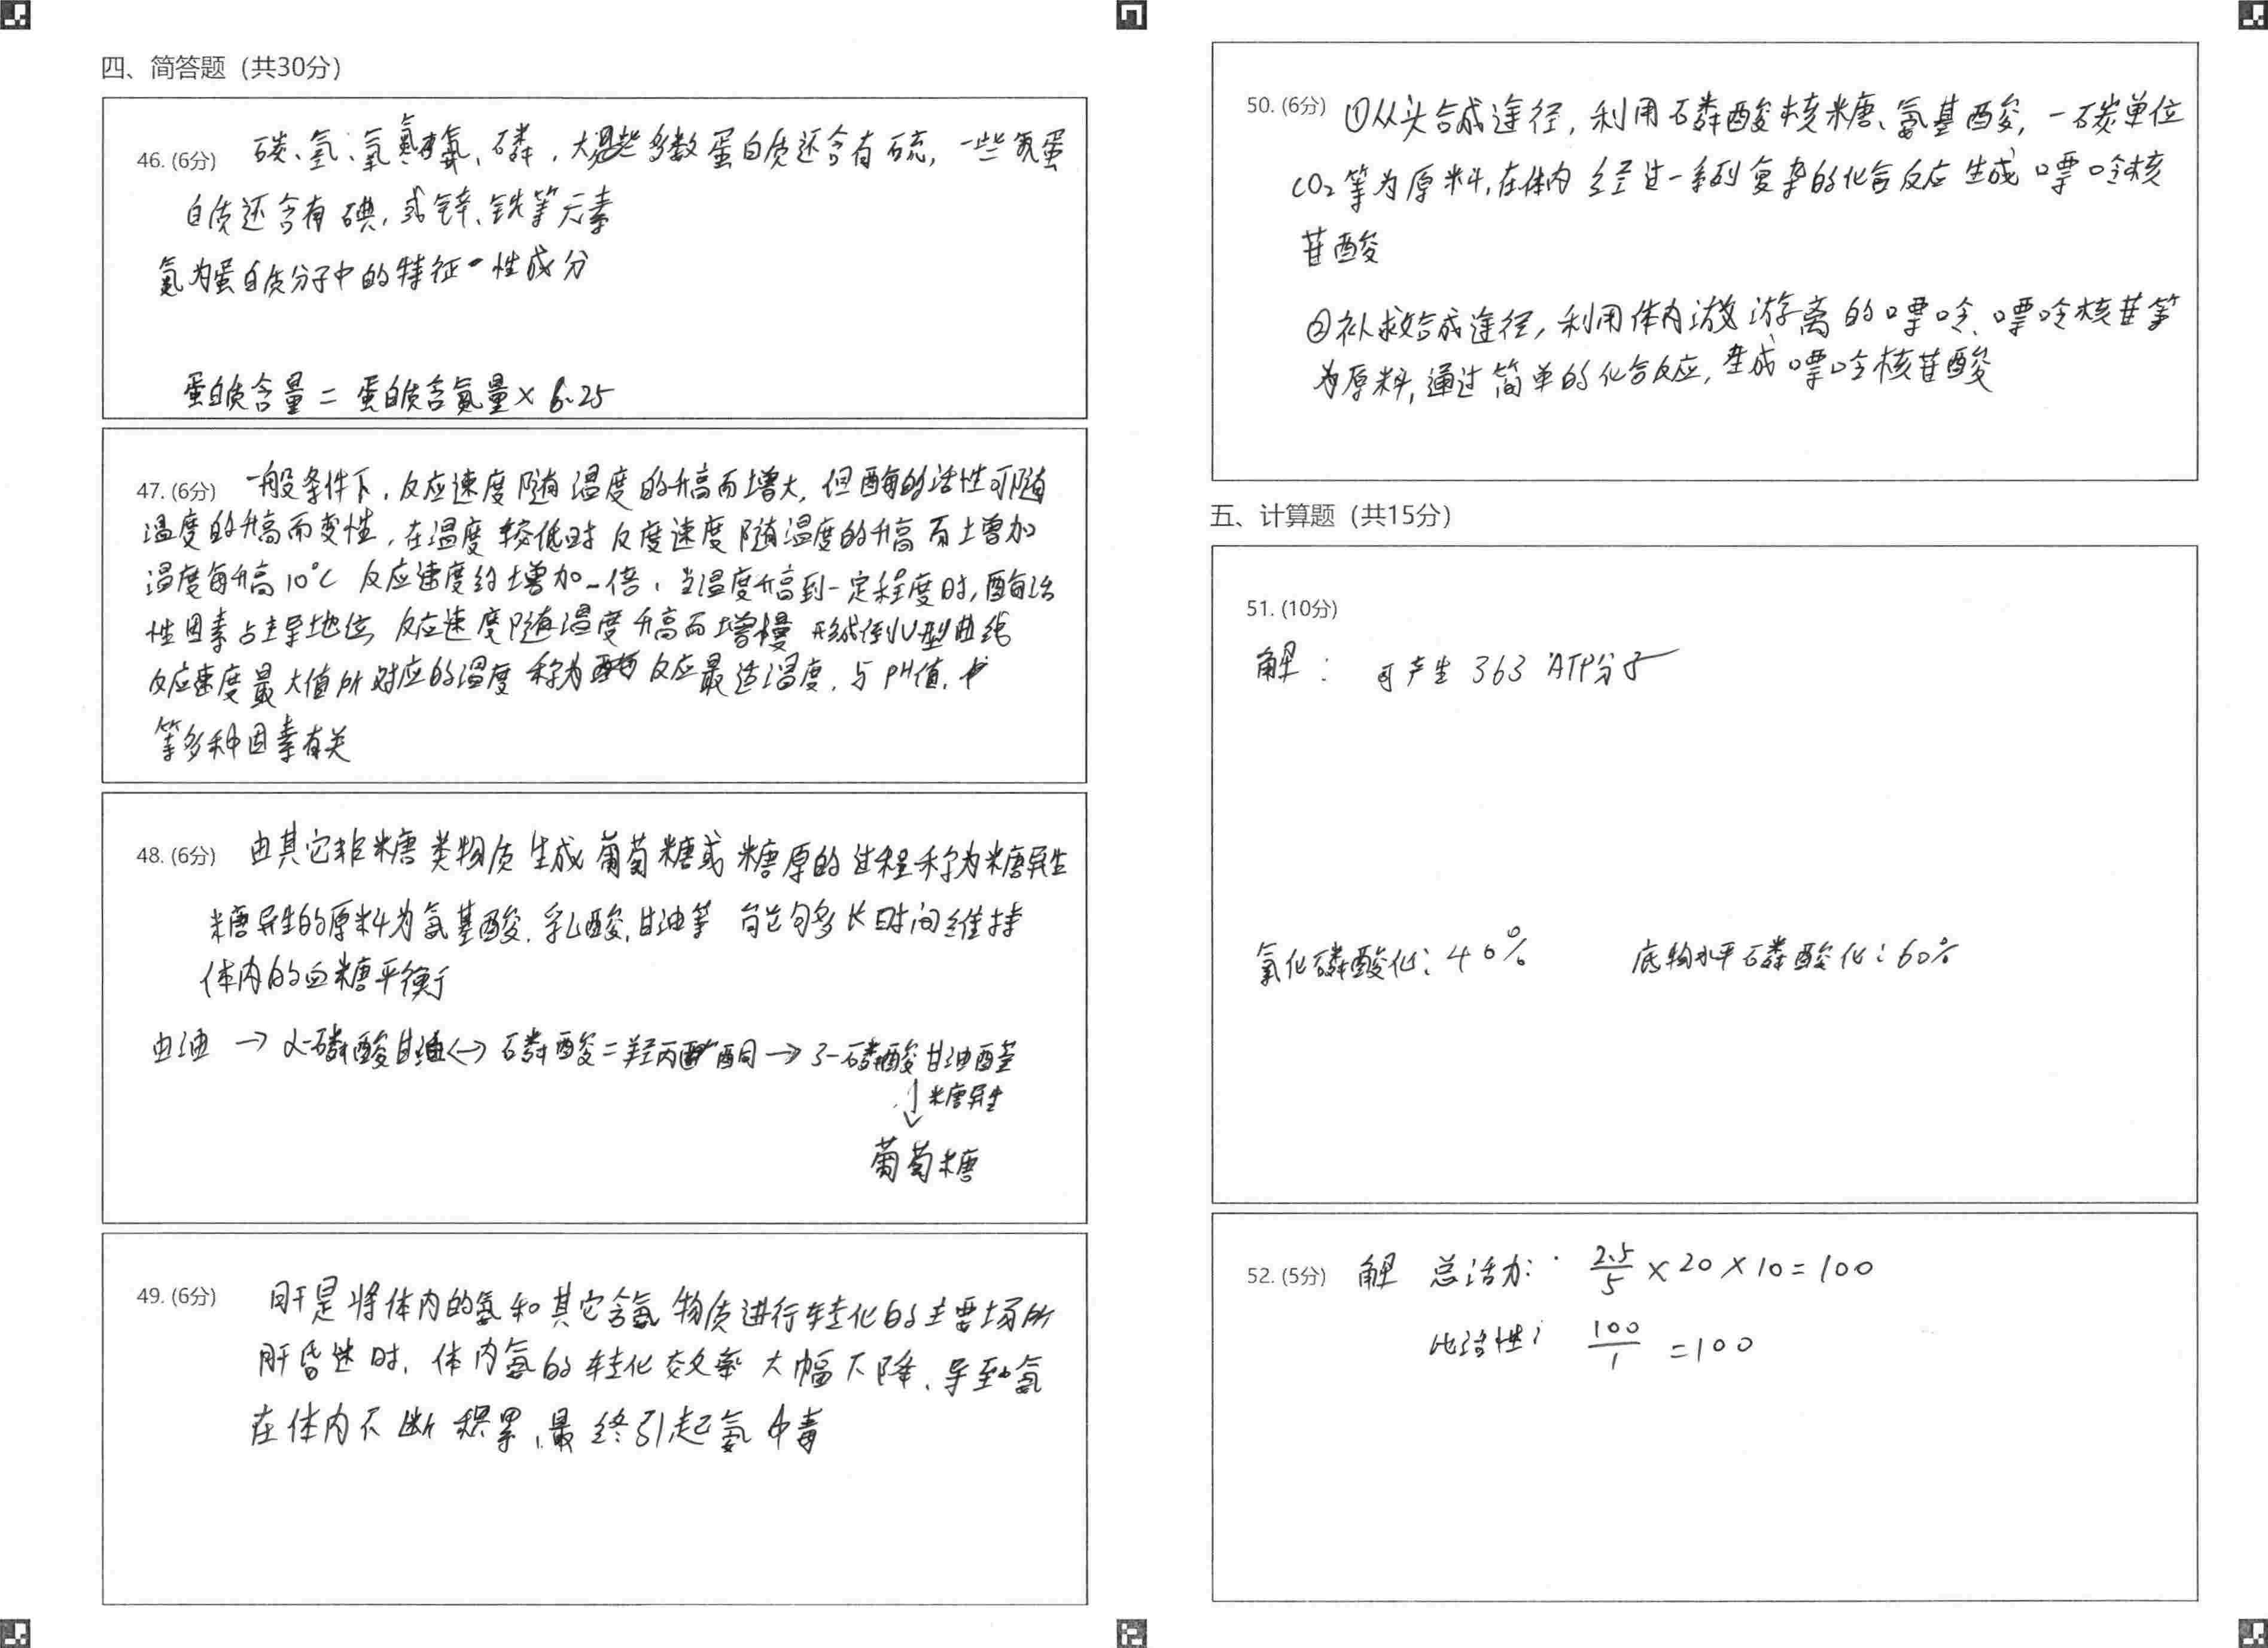 四、简答题（共30分）
46. (6分) 碳、氢、氧、氮、磷，大多数蛋白质还含有硫，一些蛋
白质还含有碘，或锌、铁等元素
氮为蛋白质分子中的特征性成分
蛋白质含量 = 蛋白质含氮量 × 6.25
47. (6分) 一般条件下，反应速度随温度的升高而增大，但酶的活性可随
温度的升高而变性，在温度较低时反度速度随温度的升高而增加
温度每升高10℃ 反应速度约增加一倍，当温度升高到一定程度时，酶活
性因素占主导地位 反应速度随温度升高而增慢 形成倒U型曲线
反应速度最大值所对应的温度称为酶反应最适温度，与PH值，
等多种因素有关
48. (6分) 由其它非糖类物质生成葡萄糖或糖原的过程称为糖异生
糖异生的原料为氨基酸，乳酸，甘油等 能够长时间维持
体内的血糖平衡
由油 → α-磷酸甘油 <-> 磷酸二羟丙酮 → 3-磷酸甘油醛
↓ 糖异生
葡萄糖
49. (6分) 肝是将体内的氨和其它含氮物质进行转化的主要场所
肝昏迷时，体内氨的转化效率大幅下降、导致氨
在体内不断积累，最终引起氨中毒
50. (6分) ①从头合成途径，利用磷酸核糖、氨基酸，一碳单位
CO₂等为原料，在体内经过一系列复杂的化合反应生成嘌呤核
苷酸
②补救合成途径，利用体内游离的嘌呤、嘌呤核苷等
为原料，通过简单的化合反应，生成嘌呤核苷酸
五、计算题（共15分）
51. (10分)
解： 可产生 363 ATP分子
氧化磷酸化：40% 底物水平磷酸化：60%
52. (5分) 解 总活力： 2.5/5 × 20 × 10 = 100
比活性： 100/1 = 100